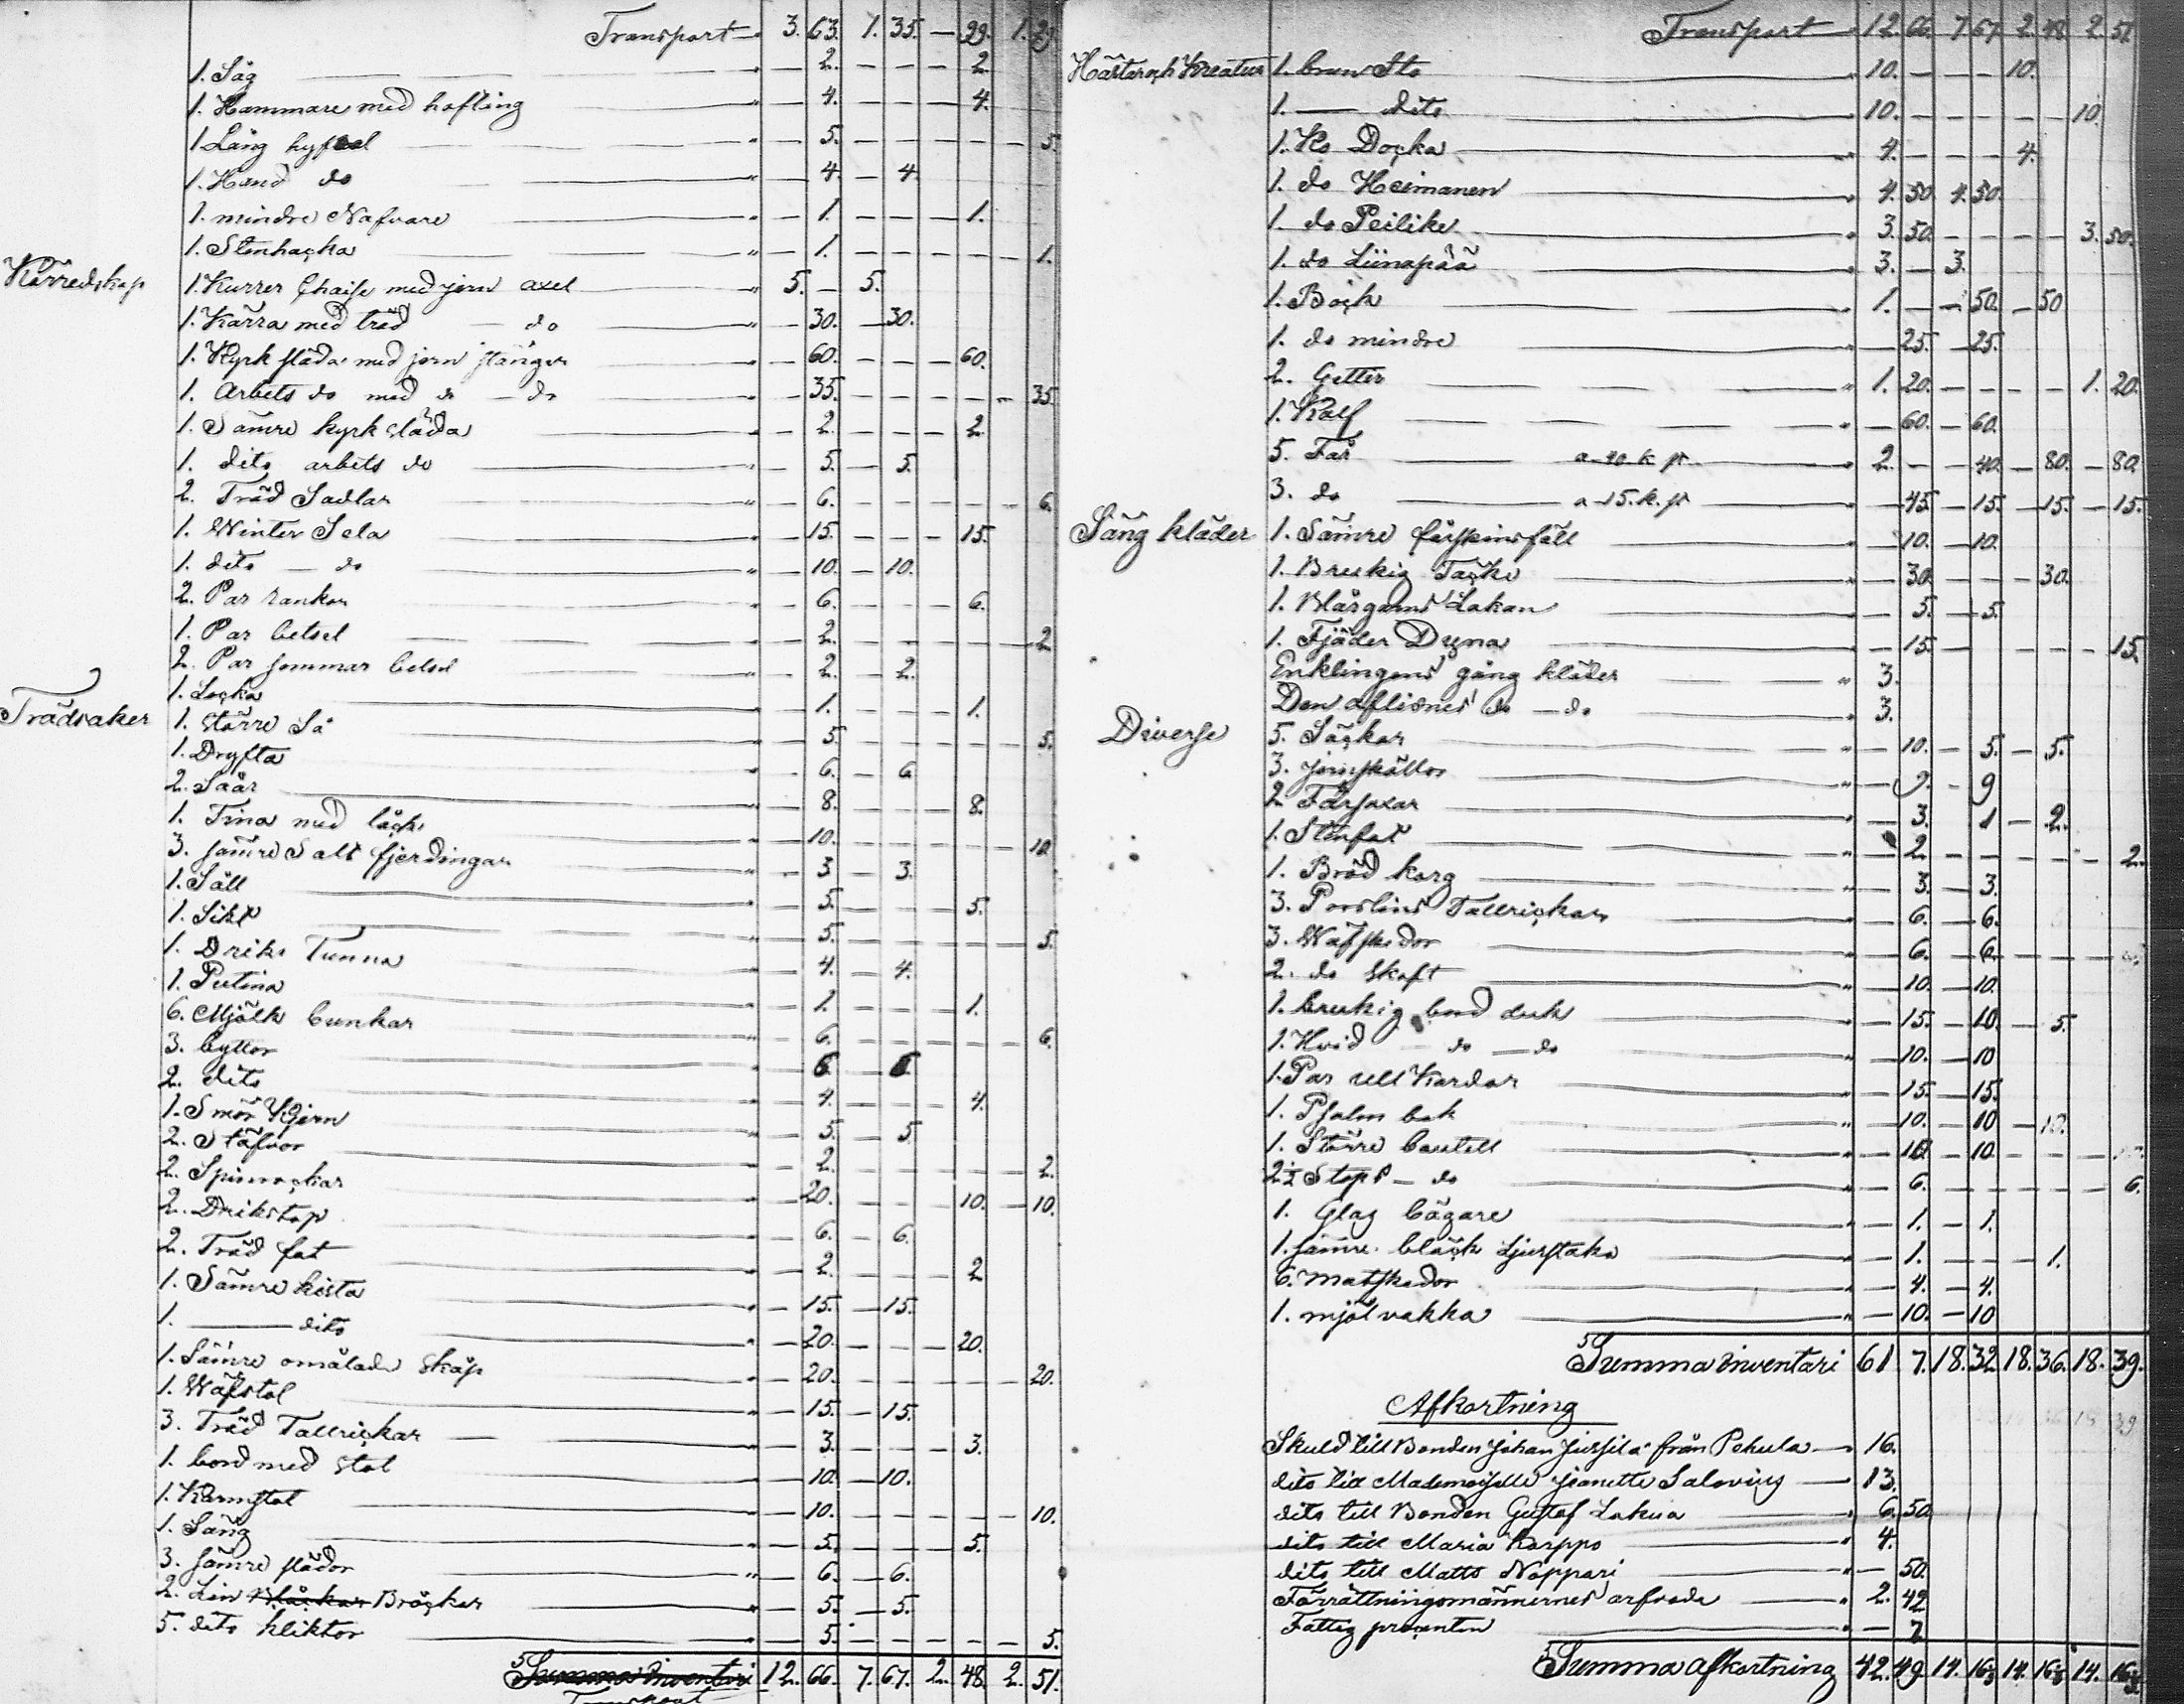 Transport 3. 63. 1. 35. — 99. 1. 29.
1. Såg — 2. — — — 2.
1. Hammare med hofting — 4. — — — 4.
1 Lång hyfvel — 5. — — — — — 5.
1. Hand do — 4. — 4.
1. mindre Nafvare — 1. — — — 1.
1. Stenhacka — 1. — — — — — 1.
Körredskap 1. Kurrer Chaise med jern axel 5. — 5.
1. Kärra med träd — do — 30. — 30.
1. Kyrk släda med jern stänger — 60. — — — 60.
1. Arbets do med do — do — 35. — — — — — 35.
1. Sämre kyrk släda — 2. — — — 2.
1. dito arbets do — 5. — 5.
2. Träd Sadlar — 6. — — — — — 6.
1. Winter Sela — 15. — — — 15.
1. dito — do — 10. — 10.
2. Par rankor — 6. — — — 6.
1. Par betsel — 2. — — — — — 2
2. Par sommar betsel — 2. — 2.
1. Locka — 1. — — — 1.
Trädsaker 1. större Så — 5. — — — — — 5.
1. Dryfta — 6. — 6
2. Såar — 8. — — — 8.
1. Tina med låck — 10. — — — — — 10
3. sämre Salt fjerdingar — 3 — 3.
1. Såll — 5. — — — 5.
1. Sikt — 5. — — — — — 5.
1. Driks Tunna — 4. — 4.
1. Putina — 1. — — — 1.
6. Mjölk bunkar — 6. — — — — — 6.
3. byttor — 6 — 6
2. dito — 4. — — — 4.
1. Smör Kjern — 5. — 5
2. Stäfvor — 2. — — — — — 2.
2. Spinnrockar — 20. — — — 10. — 10.
2. Drikstop — 6. — 6.
2. Träd fat — 2. — — — 2
1. Sämre kista — 15. — 15.
1. — dito — 20. — — — 20.
1. Sämre omålade skåp — 20. — — — — — 20.
1. Wäfstol — 15. — 15.
3. Träd Tallrickar — 3. — — — 3.
1. bord med stol — 10. — 10.
1. Karmstol — 10. — — — — — 10.
1. Säng — 5. — — — 5.
3. sämre slädor — 6. — 6.
2. Lin Bråckor Bråckor — 5. — 5.
5. dito kliktor — 5. — — — — — 5.
Summa Inventari 12. 66. 7. 67. 2. 48. 2. 51.
Transport
Transport 12. 66. 7 67. 2. 48. 2. 51.
Hästar och Kreatur 1. brun Sto 10. — — — 10.
1. — dito 10. — — — — — 10.
1. Ko Docka 4. — — — 4.
1. do Heimanen 4. 50. 4. 50.
1. do Peilike 3. 50. — — — — 3. 50.
1. do Liinapää 3. — 3.
1. Bock 1. — — 50. — 50
1. do mindre — 25. — 25.
2. Getter 1. 20. — — — — 1. 20.
1. Kalf — 60. — 60.
5. Får a 40. k. st 2. — — 40. — 80. — 80.
3. do a 15. k. st — 45 — 15. — 15. — 15.
Säng kläder 1. Sämre fårskinsfäll — 10. — 10.
1. Brukig Täcke — 30. — — — 30.
1. Blårgarns Lakan — 5. — 5.
1. Fjäder Dyna — 15. — — — — — 15.
Enklingens gång kläder 3.
Den aflidnes do — do 3.
Diverse 5. Säckar — 10. — 5. — 5.
3. jernskällor — 9. — 9
2 Fårsaxar — 3. 1 — 2.
1. Stenfat — 2 — — — — — 2.
1. Bröd korg — 3. — 3.
3. Porslins Tallrickar — 6. — 6.
3. Wäfskedor — 6. — 6.
2. do skaft — 10. — 10.
1. brukig bord duk — 15. — 10. — 5.
1. Hvid — do — do — 10. — 10
1. Par ull Kardor — 15. — 15.
1. Psalm bok — 10. — 10 — 10.
1. Större boutell — 10. — 10.
2 ½ Stops — do — 6. — — — — — 6.
1. Glas bägare — 1. — 1.
1. sämre bläck Ljusstake — 1. — — — 1.
6. matskedor — 4. — 4.
1. mjöl vakka — 10. — 10
Summa inventari 61 7. 18. 32 18. 36. 18. 39.
Afkortning
Skuld till Bonden Johan Jussila från Pehula 16.
dito till Mademoiselle Jeanette Salovius 13.
dito till Bonden Gustaf Lakua 6. 50
dito till Maria Karppo 4.
dito till Matts Noppari — 50.
Förrättningsmännernes arfvode 2. 42
Fattig procenten — 7
Summa afkortning 42. 49. 14. 16⅓ 14. 16⅓ 14. 16⅓.